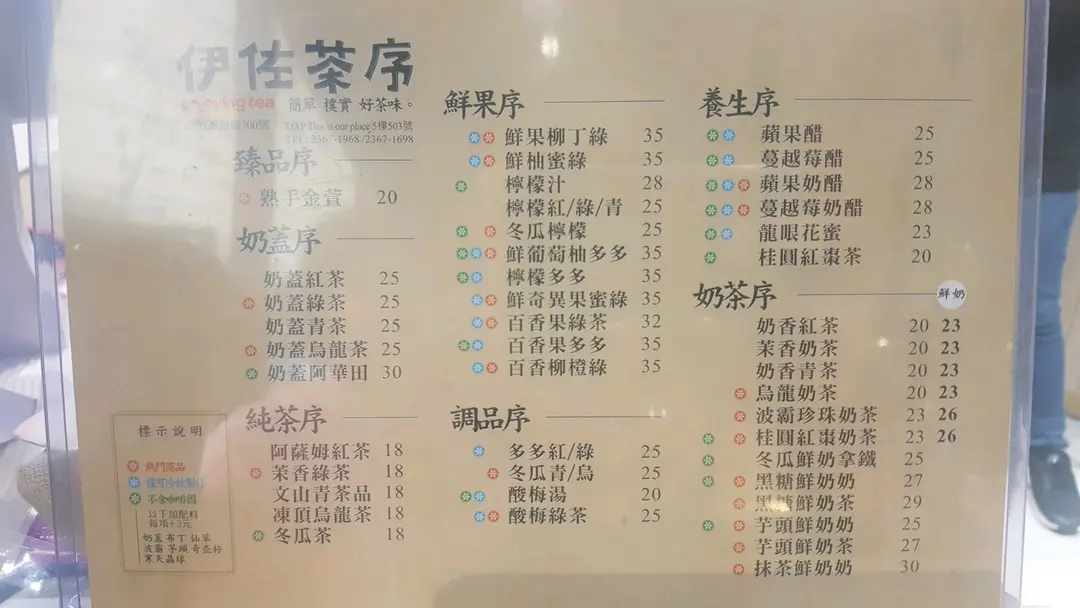 伊佐茶序
enjoying tea 簡單 樸實 好茶味。
700號 T.O.P This is our place 5樓503號
TEL: 2367-1968 /2367-1698
臻品序
熟手金萱 20
奶蓋序
奶蓋紅茶 25
奶蓋綠茶 25
奶蓋青茶 25
奶蓋烏龍茶 25
奶蓋阿華田 30
純茶序
阿薩姆紅茶 18
茉香綠茶 18
文山青茶品 18
凍頂烏龍茶 18
冬瓜茶 18
標示說明
熱門商品
不含咖啡因
以下加配料
每項+3元
奶蓋 布丁 仙草
波霸 芋頭 奇亞籽
寒天晶球
鮮果序
鮮果柳丁綠 35
鮮柚蜜綠 35
檸檬汁 28
檸檬紅/綠/青 25
冬瓜檸檬 25
鮮葡萄柚多多 35
檸檬多多 35
鮮奇異果蜜綠 35
百香果綠茶 32
百香果多多 35
百香柳橙綠 35
調品序
多多紅/綠 25
冬瓜青/烏 25
酸梅湯 20
酸梅綠茶 25
養生序
蘋果醋 25
蔓越莓醋 25
蘋果奶醋 28
蔓越莓奶醋 28
龍眼花蜜 23
桂圓紅棗茶 20
奶茶序 鮮奶
奶香紅茶 20 23
茉香奶茶 20 23
奶香青茶 20 23
烏龍奶茶 20 23
波霸珍珠奶茶 23 26
桂圓紅棗奶茶 23 26
冬瓜鮮奶拿鐵 25
黑糖鮮奶奶 27
黑糖鮮奶茶 29
芋頭鮮奶奶 25
芋頭鮮奶茶 27
抹茶鮮奶奶 30